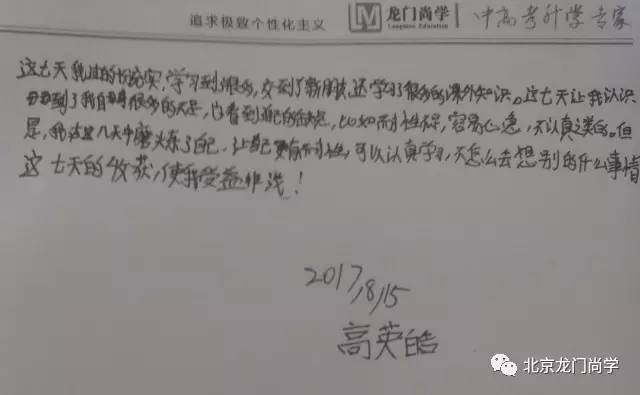 追求极致个性化主义 龙门尚学 Longmen Education 中高考升学专家
这七天我过的均充实,学习到很多,交到了新朋友,还学习了很多的课外知识。这七天让我认识
到了我自身很多的不足,也看到自己的缺点,比如耐性不足,容易心急,不认真之类的。但
是,我在这几天中磨火炼了自己,让自己更有耐性,可以认真学习,不怎么去想别的什么事情
这七天的收获,使我受益非浅!
2017,8,15
高英皓
北京龙门尚学